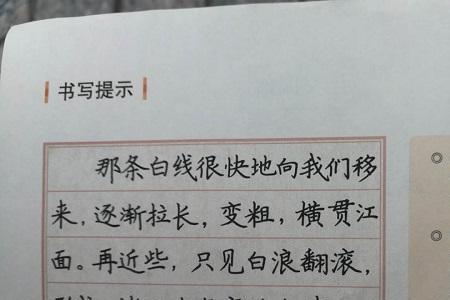 书写提示
那条白线很快地向我们移
来，逐渐拉长，变粗，横贯江
面。再近些，只见白浪翻滚，